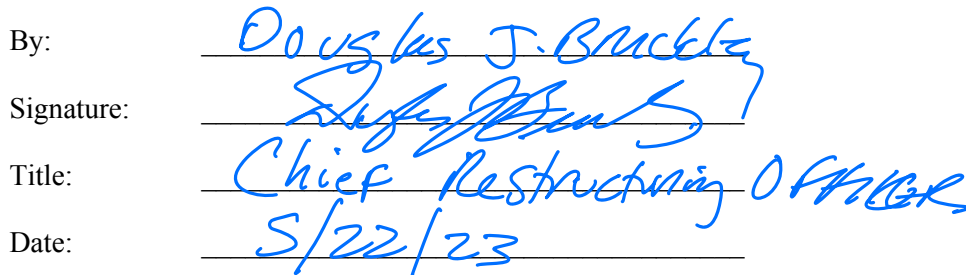 By: Douglas J. Brickley
Signature:
Title: Chief Restructuring OFFICER
Date: 5/22/23